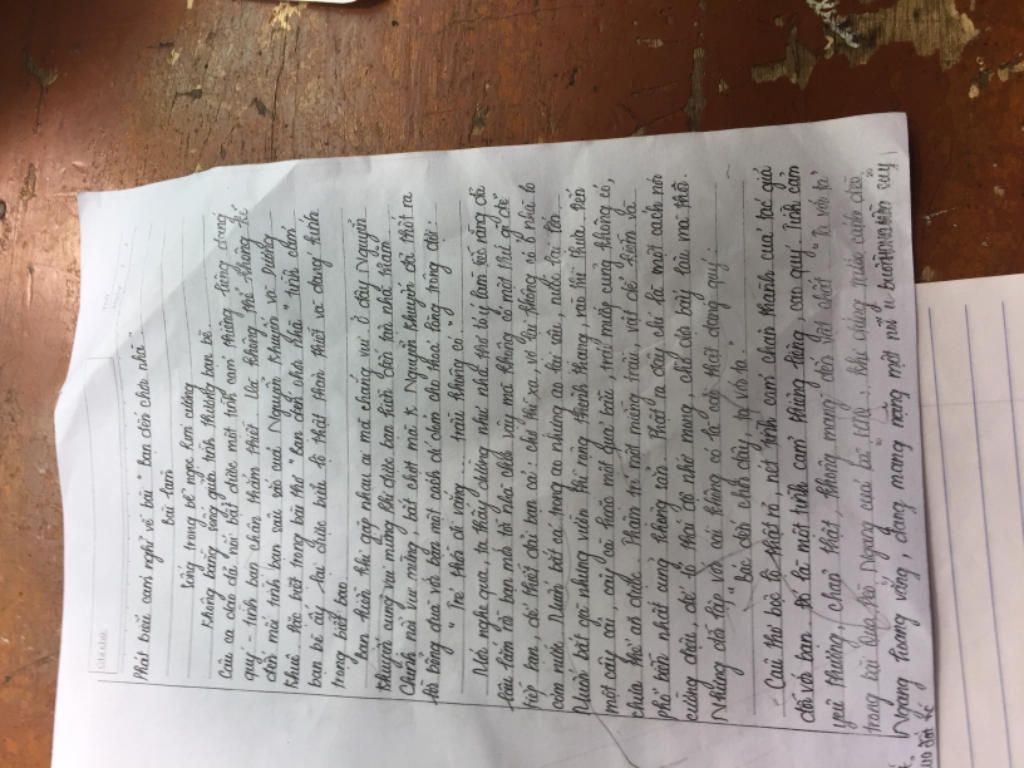 Phát biểu cảm nghĩ về bài "Bạn đến chơi nhà"
Bài làm
Sống trong bể ngọc kim cương
Không bằng sống giữa tình thương bạn bè.
Câu ca dao đã nói đến một tình cảm thiêng liêng đáng
quý - tình bạn chân thắm thiết. Và không thể không kể
đến mối tình bạn sâu sắc của Nguyễn Khuyến và Dương
Khuê, đặc biệt trong bài thơ "Bạn đến chơi nhà" tình cảm
bạn bè ấy lại được biểu lộ thật thân thiết và đang tính
trong biết bao.
bạn hiền khi gặp nhau ai mà chẳng vui. Ở đây Nguyễn
Khuyến cũng vui mừng khi được bạn hiền đến tới nhà thăm
Chính nỗi vui mừng, bất chợt mà t. Nguyễn Khuyến đã thốt ra
lời bông đùa với bạn một cách dí dỏm cho thoả lòng mong đợi.
" Trẻ thời đi vắng
trầu không có."
Mới nghe qua, ta thấy dường như nhà thơ bày làm
lâu lắm rồi bạn mới tới nhà chơi vậy mà không có một thứ gì để
tiếp bạn, để thiết đãi bạn cả: chợ thì xa, vẻ lại thằng rẻ ở nhà to
còn nữa. Muốn bắt cá trong ao nhưng ao lại sâu, nước lại lớn
Muốn bắt gà nhưng vườn thì rộng thênh thang, rào thì thưa. Đến
một cây cải, cây cà hoặc một quả bầu, trái mướp cũng không có,
chưa thể ăn được. Thậm trí một miếng trầu, vật để đếm và
phổ biến nhất cũng không còn. Thật ra đây chỉ là một cách nói
cường điệu, để tỏ thái độ nhớ mong, chờ đợi bấy lâu mà thôi.
Nhưng đối lập với cái không có là cái thật đáng quý.
" Bác đến chơi đây, ta với ta."
Câu thơ bộc lộ thật rõ, nét tình cảm chân thành của tác giả
đối với bạn. Đó là một tình cảm thiêng liêng, cao quý. Tình cảm
yêu thương, chân thật, không màng đến vật chất. "ta với ta"
trong bài Qua Đèo Ngang của bà khi đứng trước cảnh đèo
Ngang hoang vắng, đang mang nặng một nỗi u buồn